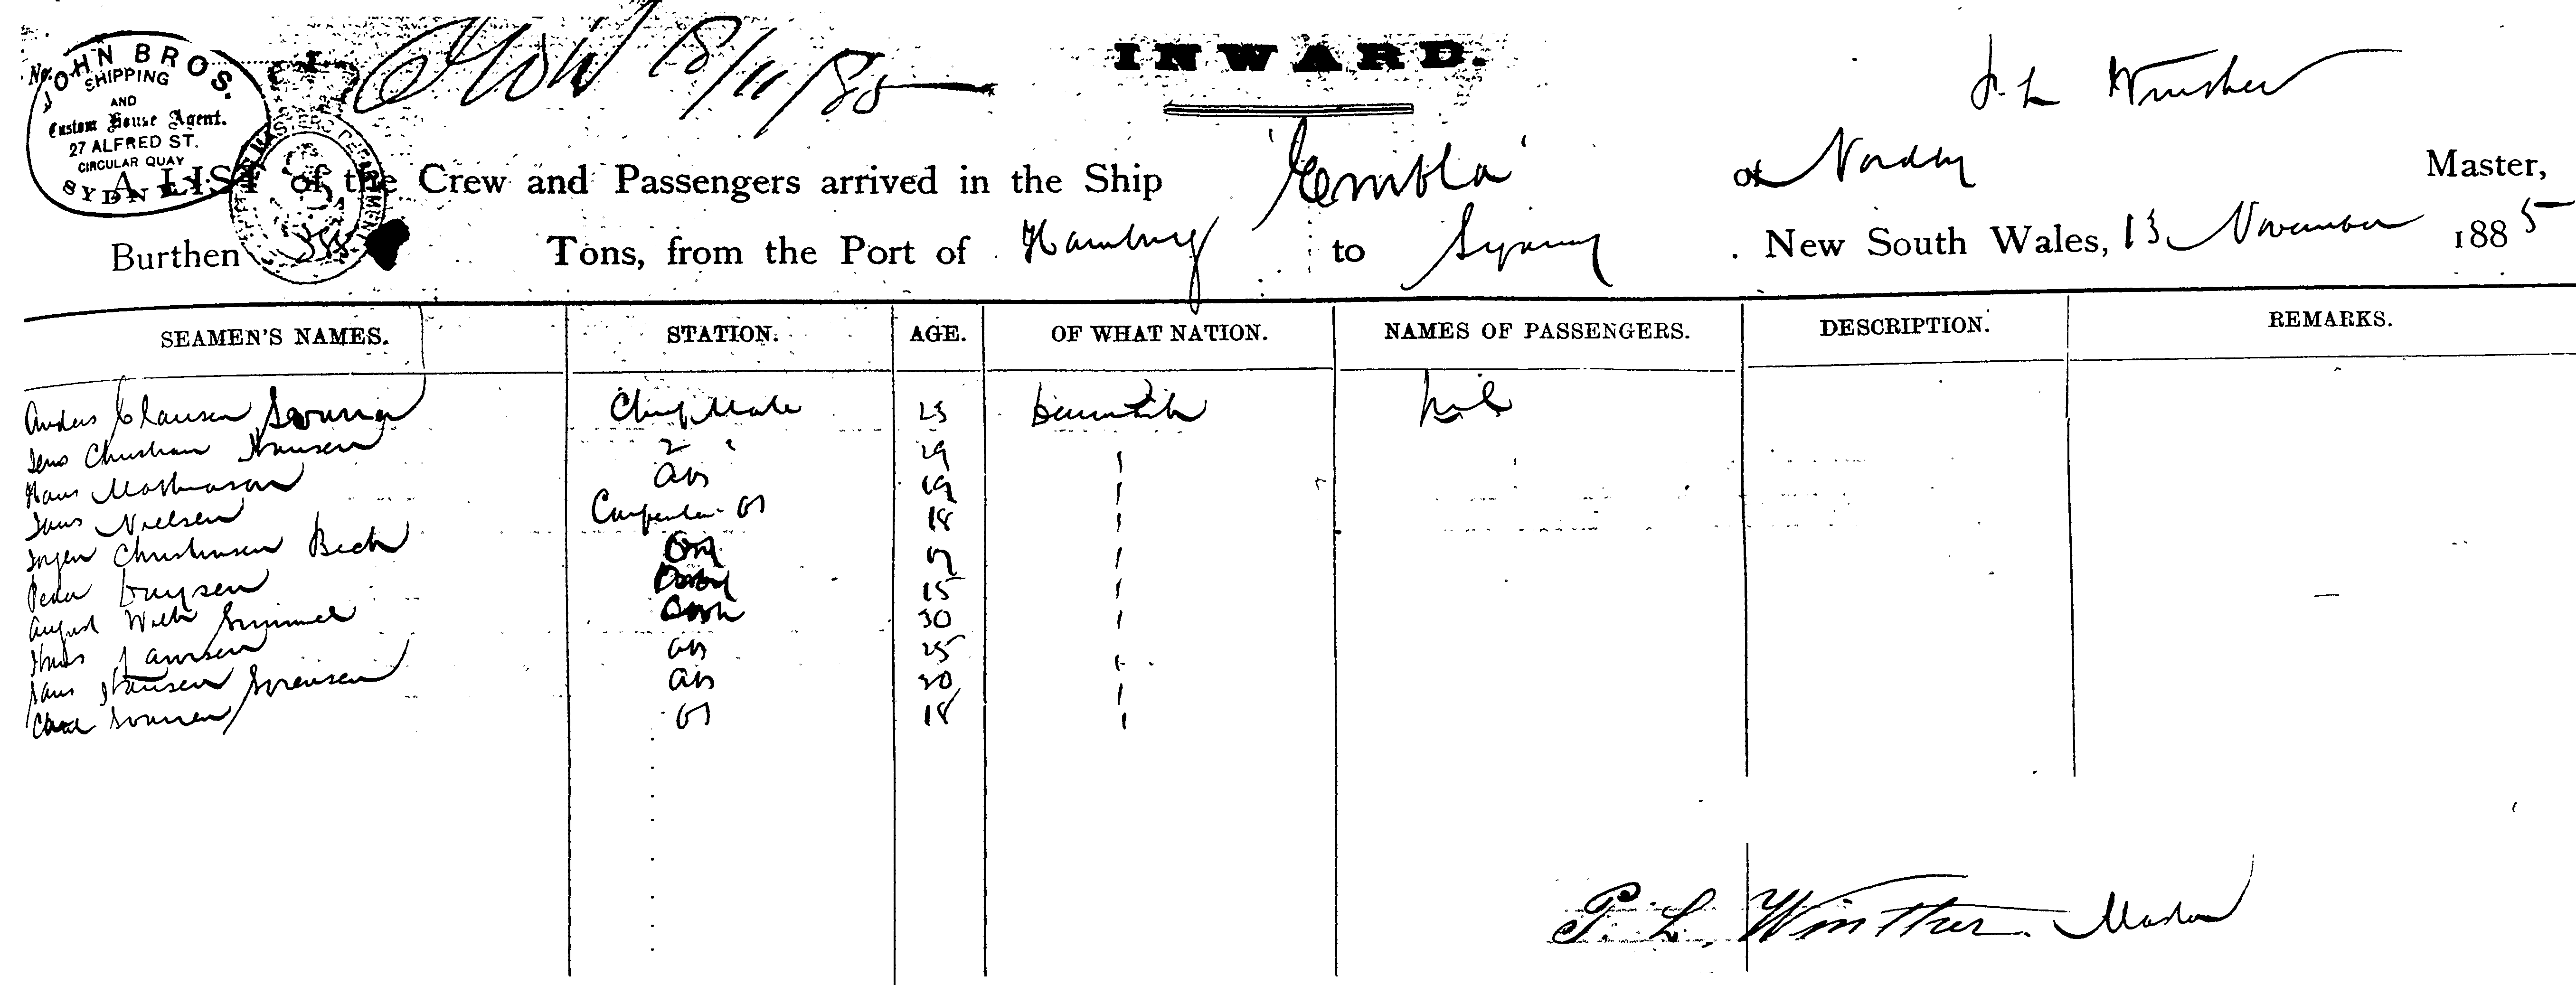 No.
JOHN BROS.
SHIPPING
AND
Custom House Agent.
27 ALFRED ST.
CIRCULAR QUAY
SYDNEY
INWARD.
P. L. Winther
A LIST of the Crew and Passengers arrived in the Ship 'Embla' of Nordby Master,
Burthen Tons, from the Port of Hamburg to Sydney New South Wales, 13 November 1885
SEAMEN'S NAMES. STATION. AGE. OF WHAT NATION. NAMES OF PASSENGERS. DESCRIPTION. REMARKS.
Anders Clausen Chief Mate Denmark Nil
Jens Christian Hansen 2 " 29 "
Hans Mathiason AB 19 "
Jens Nielsen Carpenter OS 18 "
Christensen Beck "
Peder 15 "
August Wilh 30 "
Hans AB 25 "
Hansen Sorensen AB 30 "
OS 18 "
P. L. Winther. Master